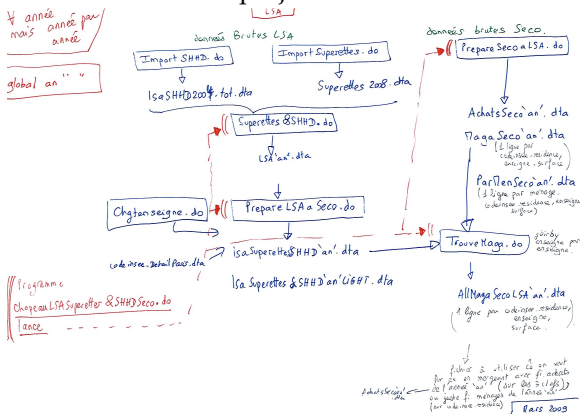 LSA
∀ année
mais année par
année
global an " "
données Brutes LSA
Import SHHD.do
Import Superettes.do
lsaSHHD2009.tot.dta
Superettes 2008.dta
Superettes &SHHD.do
LSA`an'.dta
Chgtenseigne.do
Prepare LSA a Seco.do
codeinsee.DetailPaus.dta
lsaSuperettes&SHHD`an'.dta
lsa Superettes &SHHD`an'LIGHT.dta
Programme
ChapeauLSASuperettes &SHHDSeco.do
lance
données brutes Seco.
Prepare Seco a LSA.do
AchatsSeco`an'.dta
MagaSeco`an'.dta
(1 ligne par
codeinsee.residence,
enseigne, surface)
ParMenSeco`an'.dta
(1 ligne par menage.
codeinsee residence, enseigne
surface)
TrouveMaga.do
joinby
enseigne par
enseigne
AllMagaSecoLSA`an'.dta
(1 ligne par codeinsee residence,
enseigne,
surface.
fichier à utiliser si on veut
par ex en mergeant avec fi. achats
de l'année `an' (sur les 3 clefs),
ou juste fi ménages de l'année`an'
(sur codeinsee residence)
AchatsSeco`an'
.dta
Mars 2009